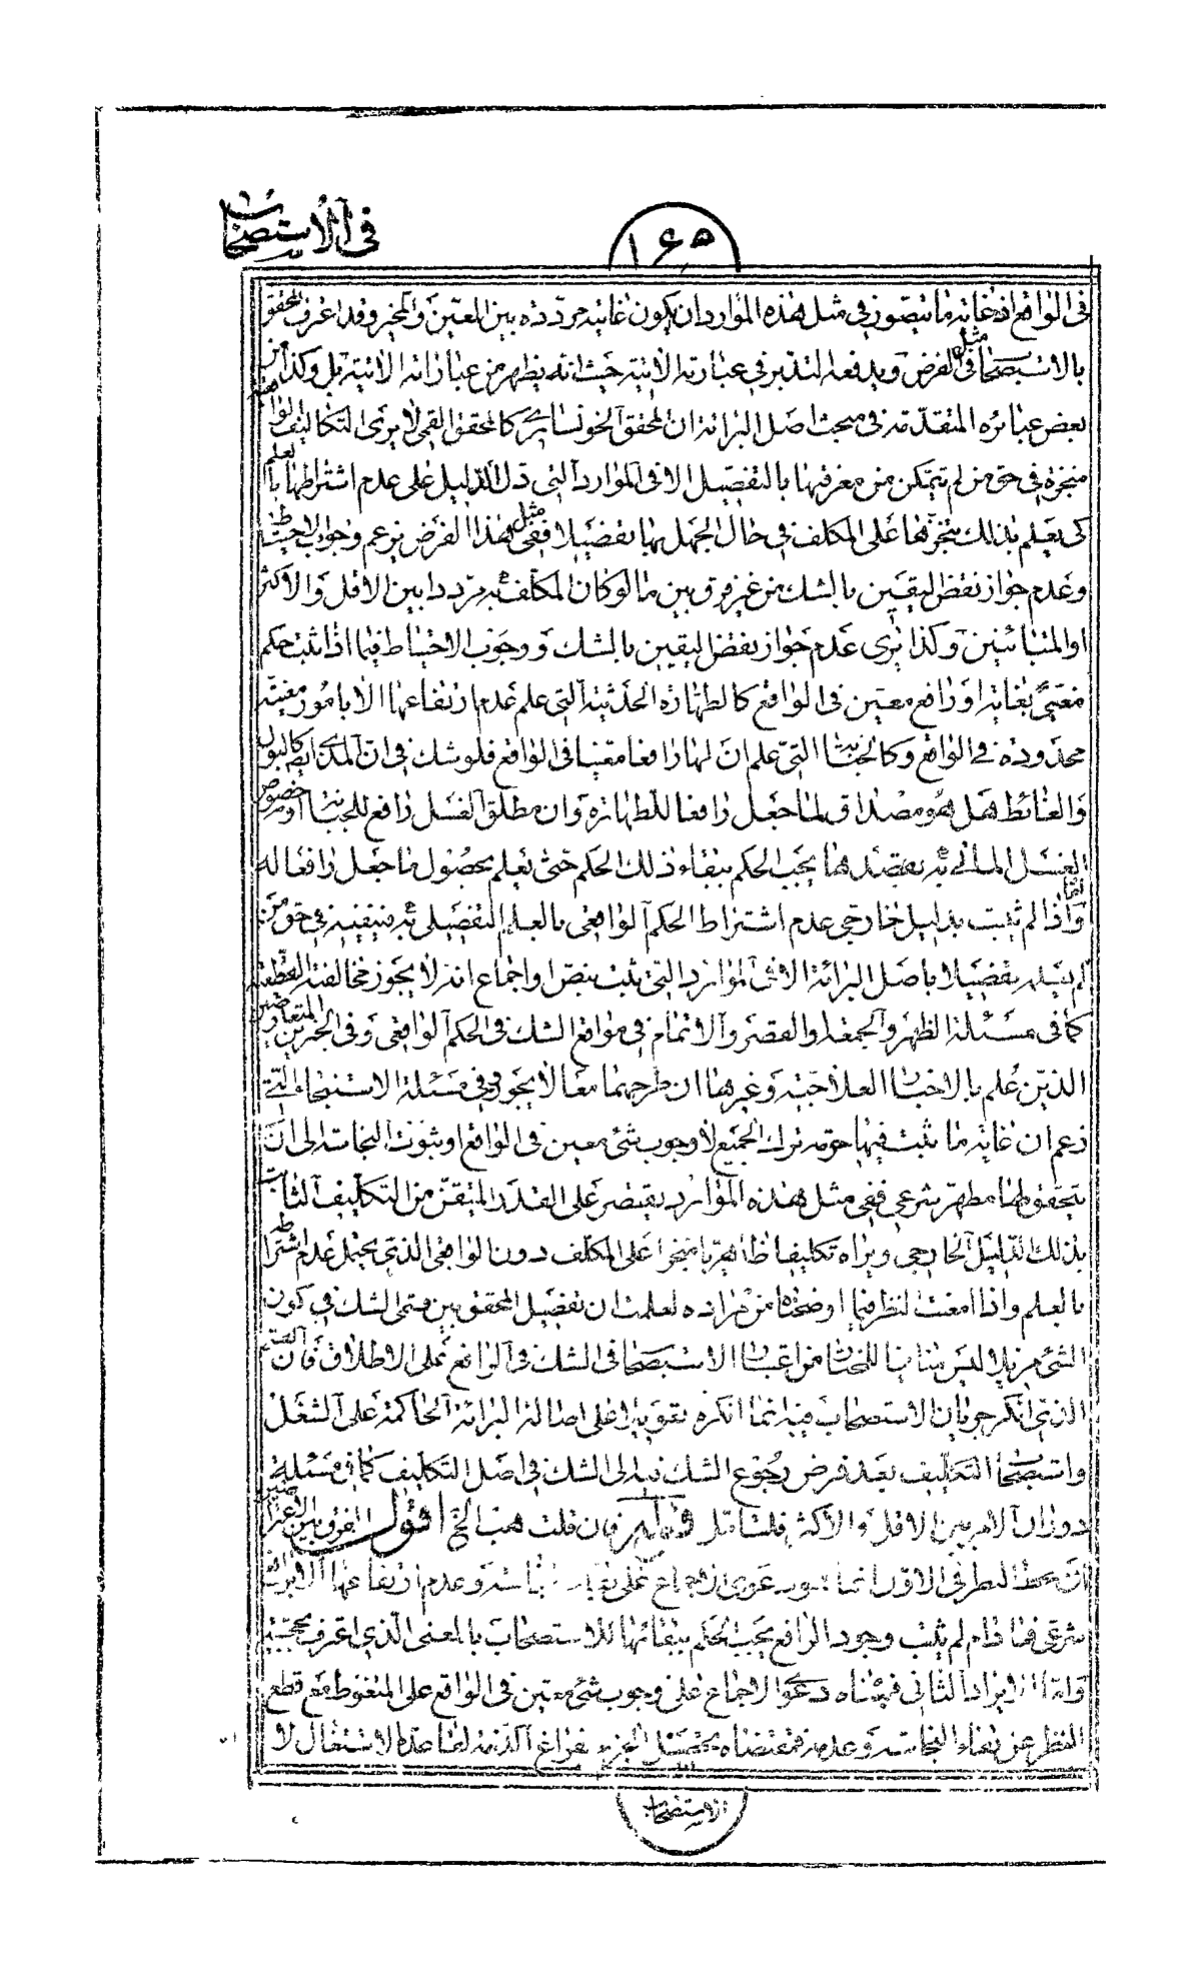 في الاستصحاب
١٦٥
في الواقع اذ غاية ما يتصور في مثل هذه الموارد ان يكون غايته مرددة بين المعين والمخير وقد اعترف المحقق
بالاستصحاب في مثل الفرض ويدفعه التدبر في عبارته الاتية حيث انه يظهر من عباراته الاتية بل وكذا من
بعض عبائره المتقدمة في مبحث اصل البرائة ان المحقق الخونساري كالمحقق القمي لا يرى التكاليف الواقعية
منجزة في حق من لم يتمكن من معرفتها بالتفصيل الا في الموارد التي دل الدليل على عدم اشتراطها بالعلم
كي يعلم بذلك تنجزها على المكلف في حال الجهل بها تفصيلا ففي مثل هذا الفرض يزعم وجوب الاحتياط
وعدم جواز نقض اليقين بالشك من غير فرق بين ما لو كان المكلف به مرددا بين الاقل والاكثر
او المتبائنين وكذا يرى عدم جواز نقض اليقين بالشك ووجوب الاحتياط فيما اذا ثبت حكم
مغيى بغاية او رافع معين في الواقع كالطهارة الحدثية التي علم عدم ارتفاعها الا بامور معينة
محدودة في الواقع وكالجنابة التي علم ان لها رافعا معينا في الواقع فلو شك في ان المذي كالبول
والغائط هل هو مصداق لما جعل رافعا للطهارة وان مطلق الغسل رافع للجنابة او خصوص
الغسل الماتي به بقصدها يجب الحكم ببقاء ذلك الحكم حتى يعلم بحصول ما جعل رافعا له
واما اذا لم يثبت بدليل خارجي عدم اشتراط الحكم الواقعي بالعلم التفصيلي به فينفيه في حق من
لم يعلمه تفصيلا باصل البرائة الا في الموارد التي ثبت بنص او اجماع انه لا يجوز مخالفته القطعية
كما في مسئلة الظهر والجمعة والقصر والاتمام في مواقع الشك في الحكم الواقعي وفي الخبرين المتعارضين
الذين علم بالاخبار العلاجية وغيرها ان طرحهما معا لا يجوز وفي مسئلة الاستنجاء التي
زعم ان غاية ما يثبت فيها حرمة ترك الجميع لا وجوب شيء معين في الواقع او ثبوت النجاسة الى ان
يتحقق لها مطهر شرعي ففي مثل هذه الموارد يقتصر على القدر المتيقن من التكليف الثابت
بذلك الدليل الخارجي ويراه تكليفا ظاهريا منجزا على المكلف دون الواقعي الذي يحتمل عدم اشتراطه
بالعلم واذا امعنت النظر فيما اوضحناه من مراده لعلمت ان تفصيل المحقق بين قسمي الشك في كون
الشيء مزيلا ليس منافيا للمختار من اعتبار الاستصحاب في الشك في الرافع على الاطلاق فان القسم
الذي انكر جريان الاستصحاب فيه انما انكره بقوله اعلى اصالة البرائة الحاكمة على الشغل
واستصحاب التكليف بعد فرض رجوع الشك فيه الى الشك في اصل التكليف كما في مسئلة
دوران الامر بين الاقل والاكثر فليتامل قوله فان قلت هب الخ اقول الفرق بين الاعتراضين
ان محط النظر في الاول انما هو دعوى الاجماع على بقاء النجاسة وعدم ارتفاعها الا بمزيل
شرعي فما دام لم يثبت وجود الرافع يجب الحكم ببقائها للاستصحاب بالمعنى الذي اعترف بحجيته
واما الايراد الثاني فمبناه دعوى الاجماع على وجوب شيء معين في الواقع على المتغوط مع قطع
النظر عن بقاء النجاسة وعدمه فمقتضاه تحصيل الجزم بفراغ الذمة لقاعدة الاشتغال لا
الاستصحاب